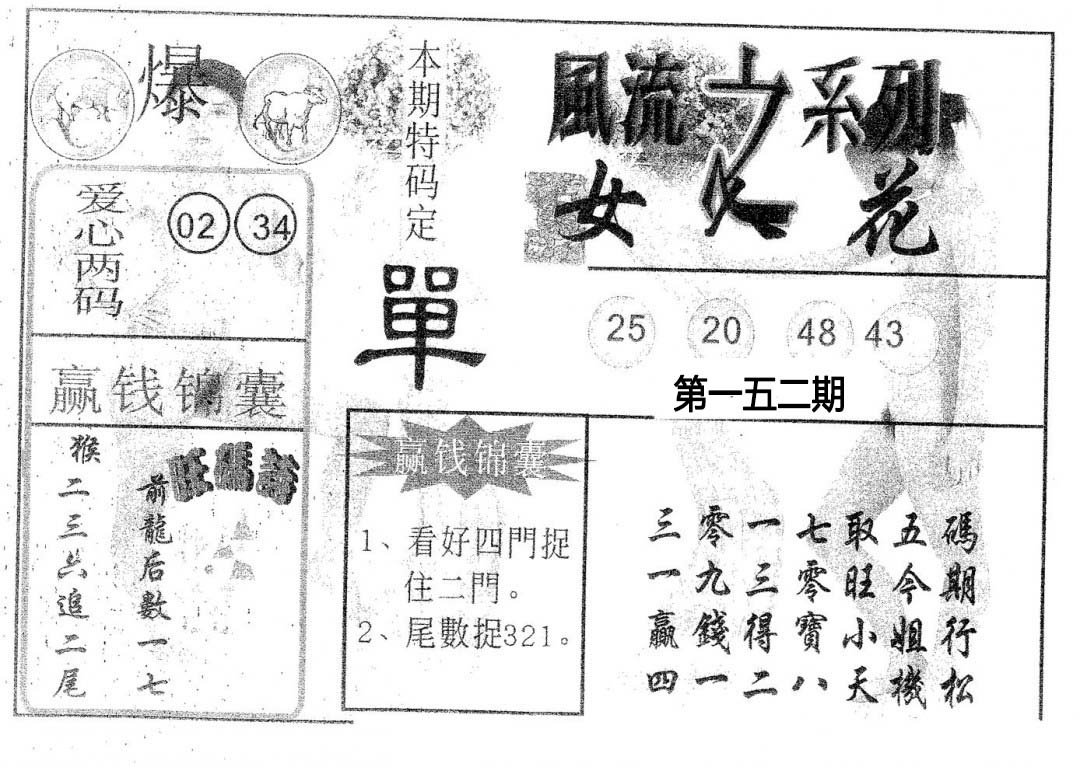 爆
本期特码定
單
風流之系列
女人花
爱心两码
02 34
25 20 48 43
第一五二期
赢钱锦囊
旺碼詩
猴二三六追二尾
前龍后數一七
赢钱锦囊
1、看好四門捉
住二門。
2、尾數捉321。
三零一七取五碼
一九三零旺今期
贏錢得寶小姐行
四一二八天機松